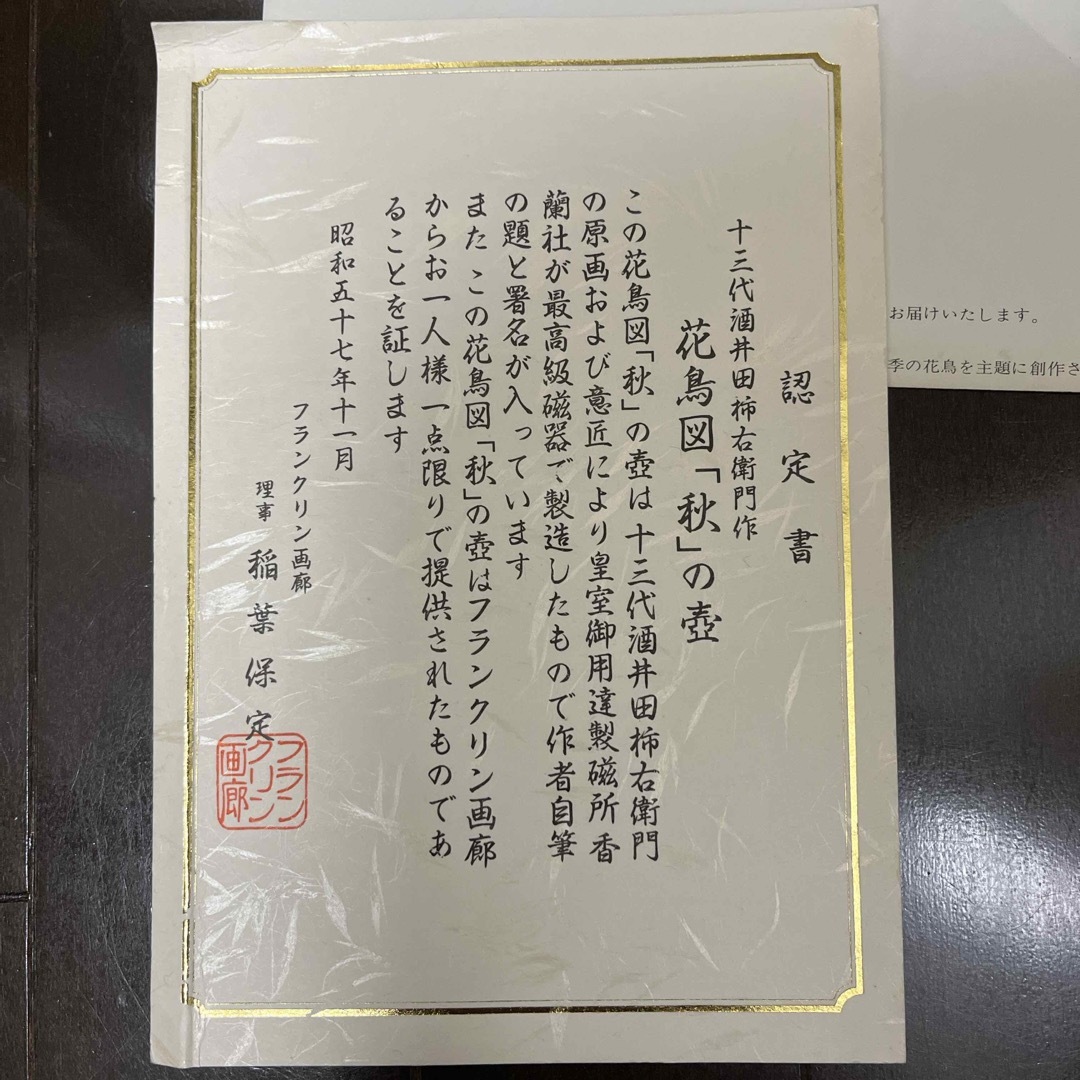 認定書
十三代酒井田柿右衛門作
花鳥図「秋」の壺
この花鳥図「秋」の壺は十三代酒井田柿右衛門
の原画および意匠により皇室御用達製磁所香
蘭社が最高級磁器で製造したもので作者自筆
の題と署名が入っています
また この花鳥図「秋」の壺はフランクリン画廊
からお一人様一点限りで提供されたものであ
ることを証します
昭和五十七年十一月
フランクリン画廊
理事 稲葉保定
フラン
クリン
画廊
お届けいたします。
季の花鳥を主題に創作さ